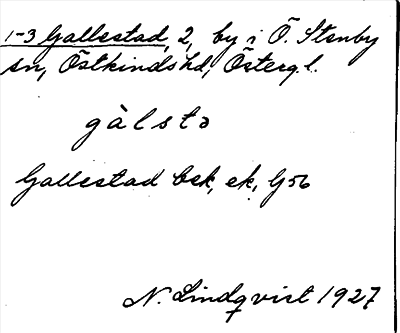 1-3 Gallestad, 2, by i Ö. Stenby
sn, Östkinds hd, Östergl.
gàlstə
Gallestad bsk, ek, G56
N. Lindqvist 1927